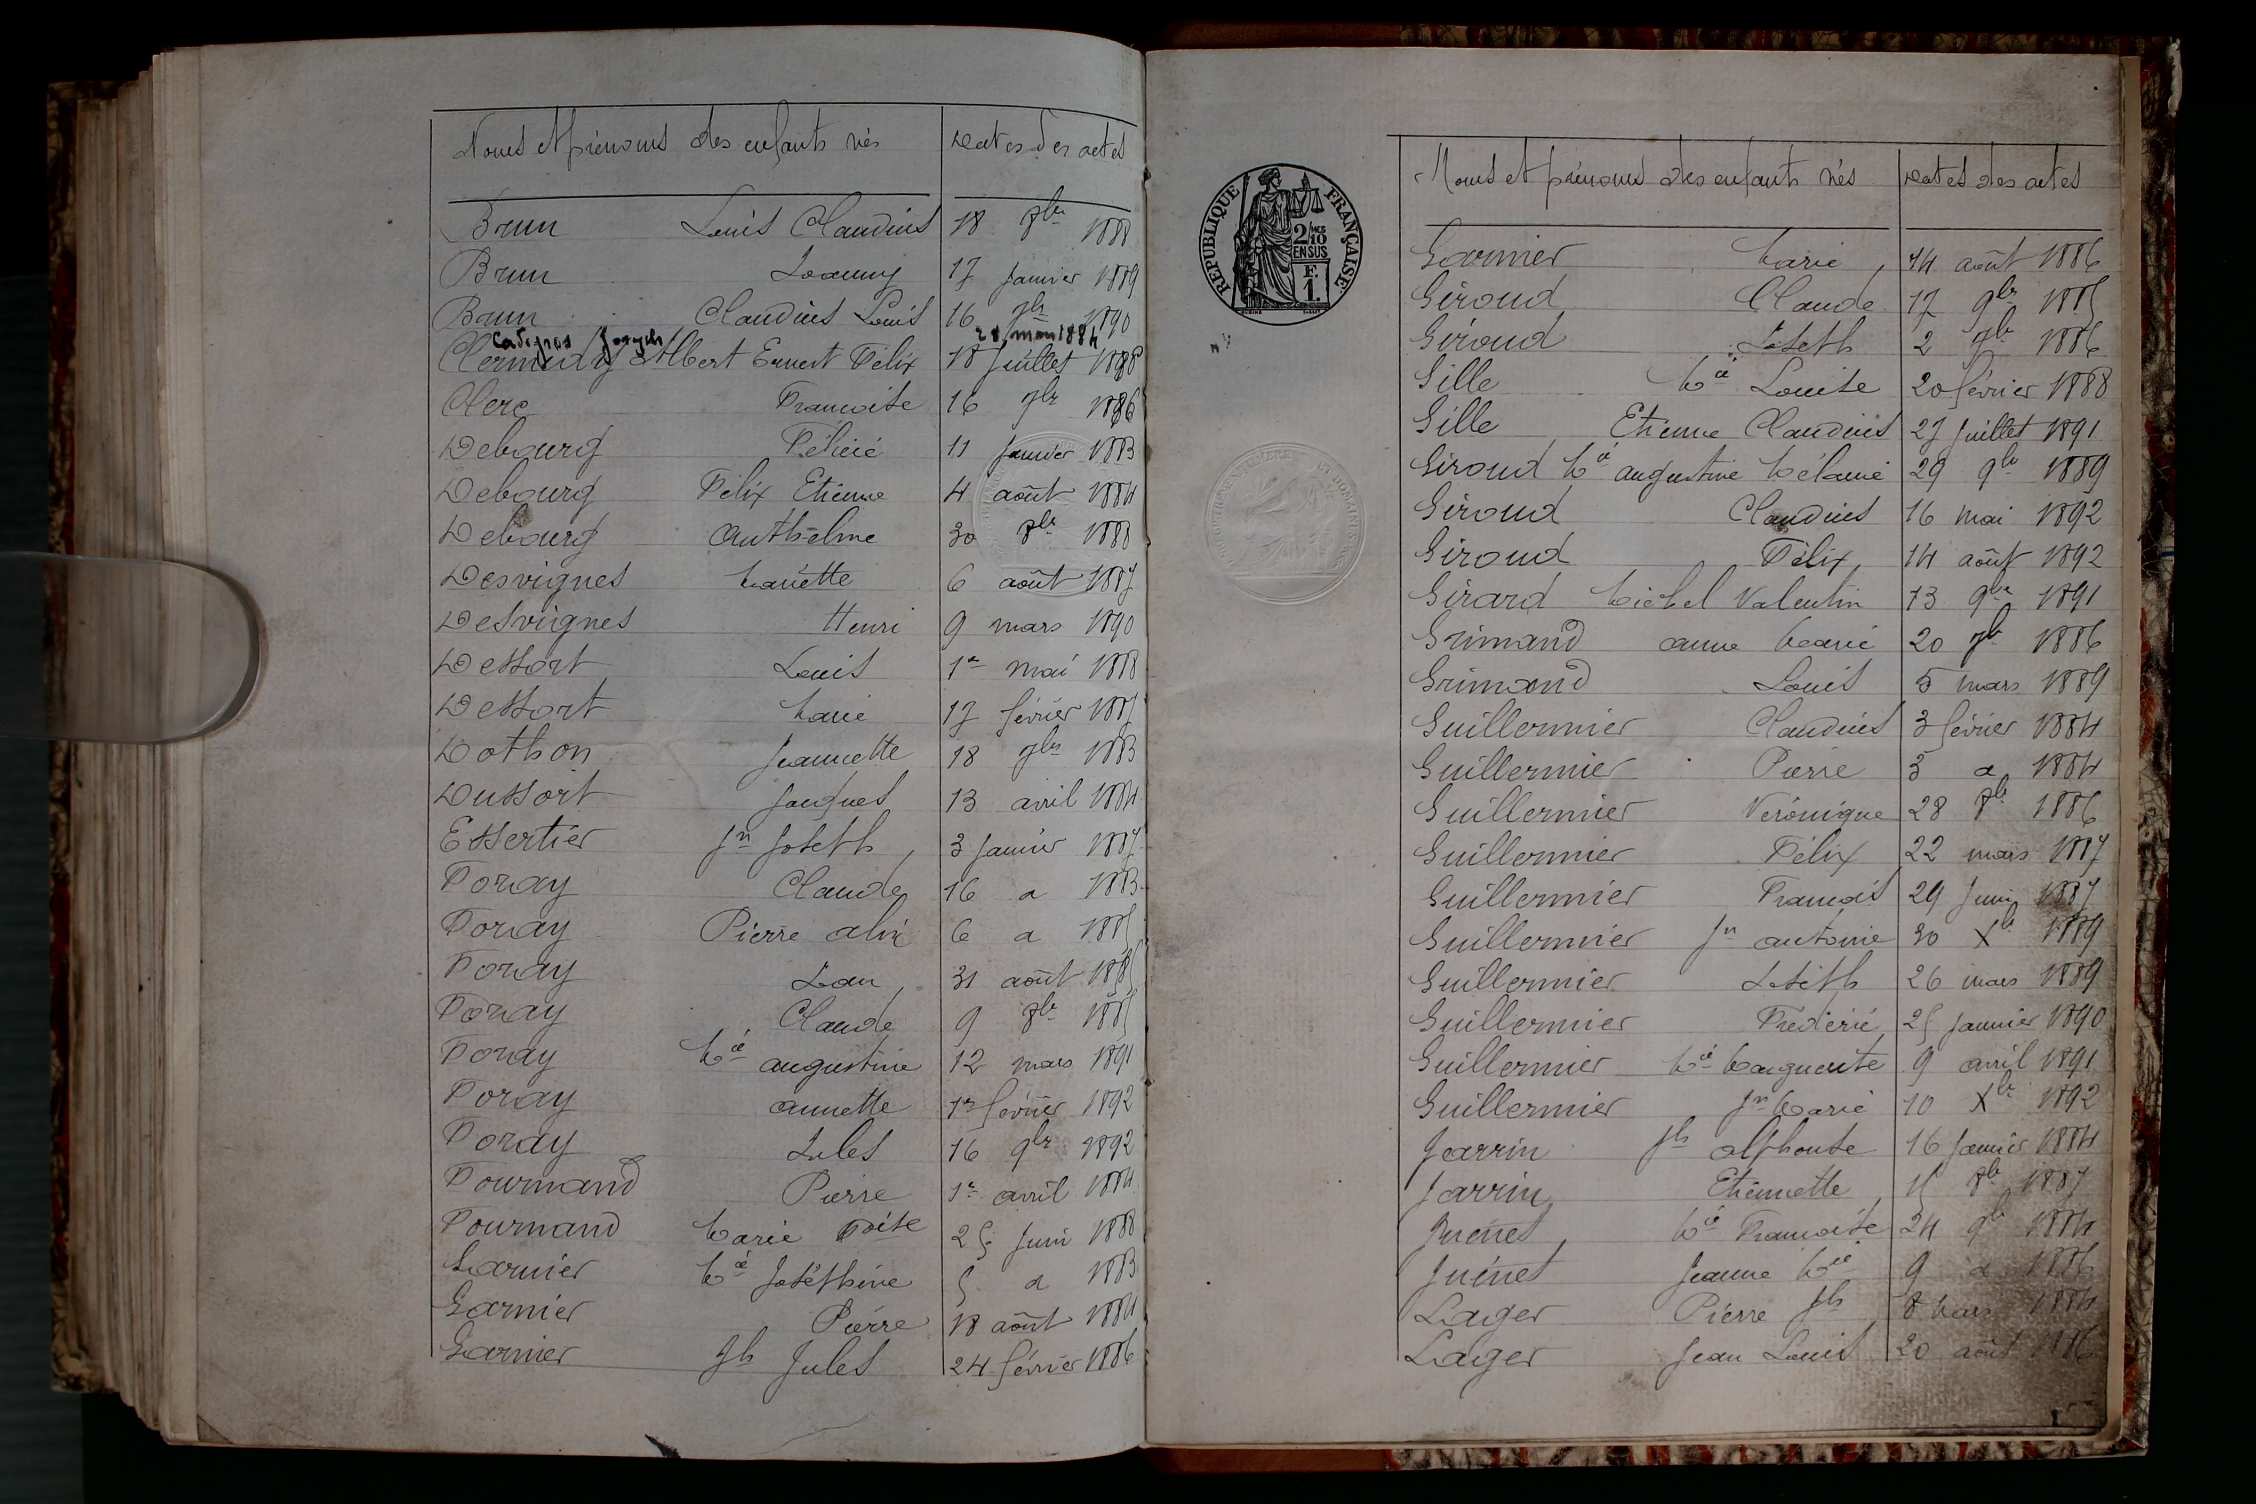 Noms et prénoms des enfants nés Dates des actes
Brun Louis Claudius 18 8bre 1888
Brun Joanny 17 Janvier 1889
Brun Claudius Louis 16 7bre 1890
Joseph 28 mars 1884
Albert Ernest Félix 18 Juillet 1888
Clerc Françoise 16 7br 1886
Debourg Félicie 11 Janvier 1883
Debourg Félix Etienne 4 août 1884
Debourg Anthelme 30 8bre 1888
Desvignes Mariette 6 août 1887
Desvignes Henri 9 mars 1890
Dessort Louis 1er mai 1888
Dessort Marie 17 février 1885
Dothon Jeannette 18 7bre 1883
Dussort Jacques 13 avril 1884
Essertier Jn Joseph 3 Janvier 1887
Foray Claude 16 d 1883
Foray Pierre 6 d 1885
Foray Jean 31 août 1885
Foray Claude 9 8bre 1885
Foray Mie augustine 12 mars 1891
Foray annette 1er février 1892
Foray Jules 16 9br 1892
Fournand Pierre 1er avril 1884
Fournand Marie 25 Juin 1888
Garnier Mie Joséphine 5 d 1883
Garnier Pierre 18 août 1884
Garnier Jh Jules 24 février 1886
RÉPUBLIQUE FRANÇAISE
2/10
EN SUS
F.
1.
Noms et prénoms des enfants nés Dates des actes
Garnier Marie 14 août 1886
Giroud Claude 17 9br 1885
Giroud Joseph 2 7br 1886
Gille Mie Louise 20 février 1888
Gille Etienne Claudius 27 Juillet 1891
Giroud Mie augustine Mélanie 29 9br 1889
Giroud Claudius 16 mai 1892
Giroud Félix 14 août 1892
Girard Michel Valentin 13 9br 1891
Grimand anne Marie 20 7br 1886
Grimand Louis 5 mars 1889
Guillermier Claudius 3 février 1884
Guillermier Pierre 3 d 1884
Guillermier Véronique 28 8br 1886
Guillermier Félix 22 mars 1887
Guillermier François 29 Juin 1887
Guillermier Jn antoine 30 Xbr 1889
Guillermier Joseph 26 mars 1889
Guillermier Frédéric 25 Janvier 1890
Guillermier Mie Marguerite 9 avril 1891
Guillermier Jn Marie 10 Xbr 1892
Jarrin Jh alphonse 16 Janvier 1884
Jarrin Etiennette 15 8br 1887
Juenet Mie Françoise 24 9br 1884
Juenet Jeanne Mie 9 d 1886
Lager Pierre Jh 8 Mars 1884
Lager Jean Louis 20 août 1886